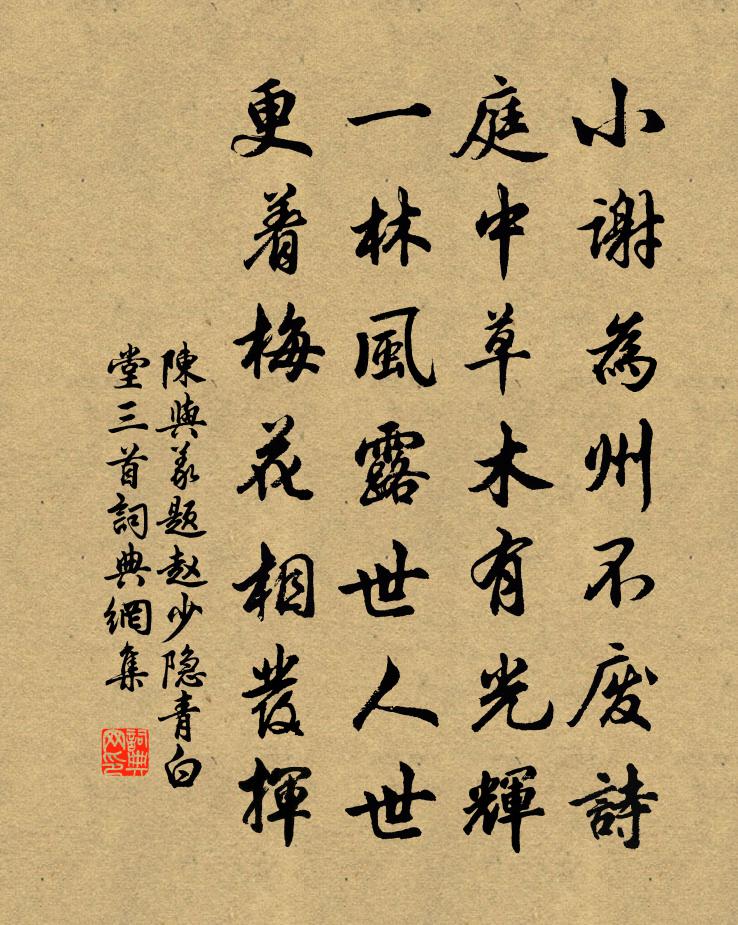 小謝為州不廢詩
庭中草木有光輝
一林風露世人世
更着梅花相發揮
陳與義題赵少隐青白
堂三首詞典網集
詞典
网印